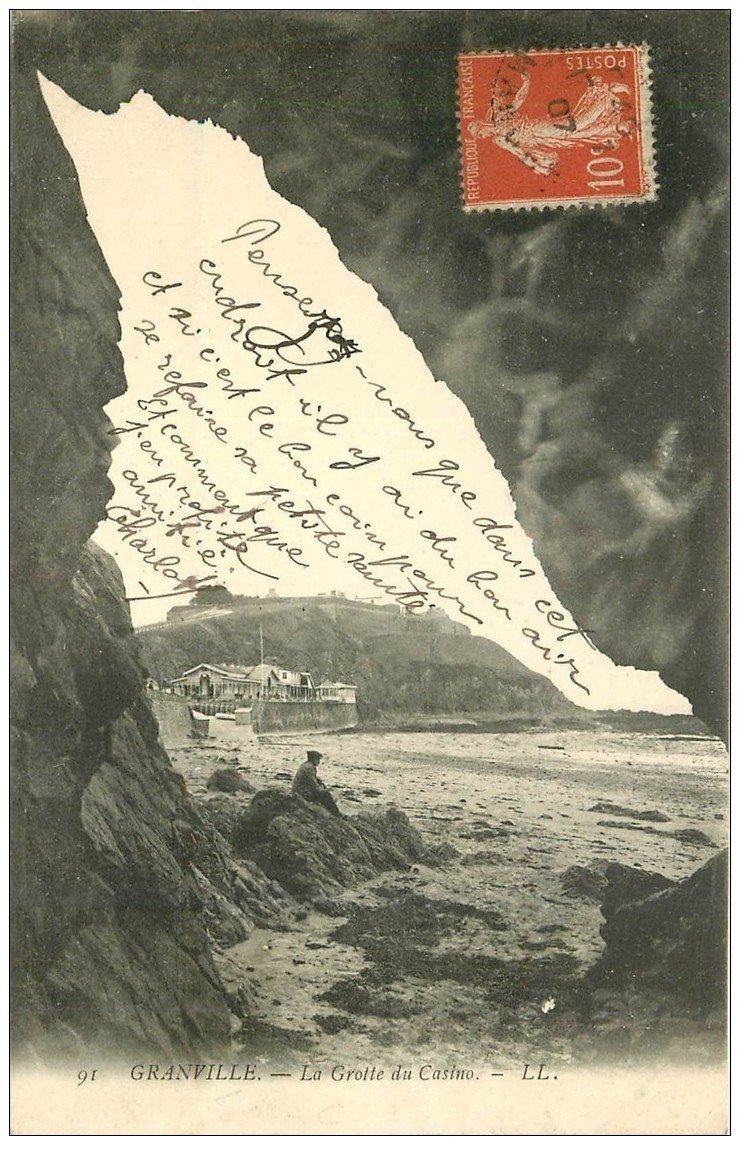 RÉPUBLIQUE FRANÇAISE
POSTES
10c
07
Pensez-vous que dans cet
endroit il y ai du bon air
et si c'est le bon coin pour
se refaire sa petite santé
et comment que
j'en profite
amitié.
Charlot
91 GRANVILLE. — La Grotte du Casino. — LL.